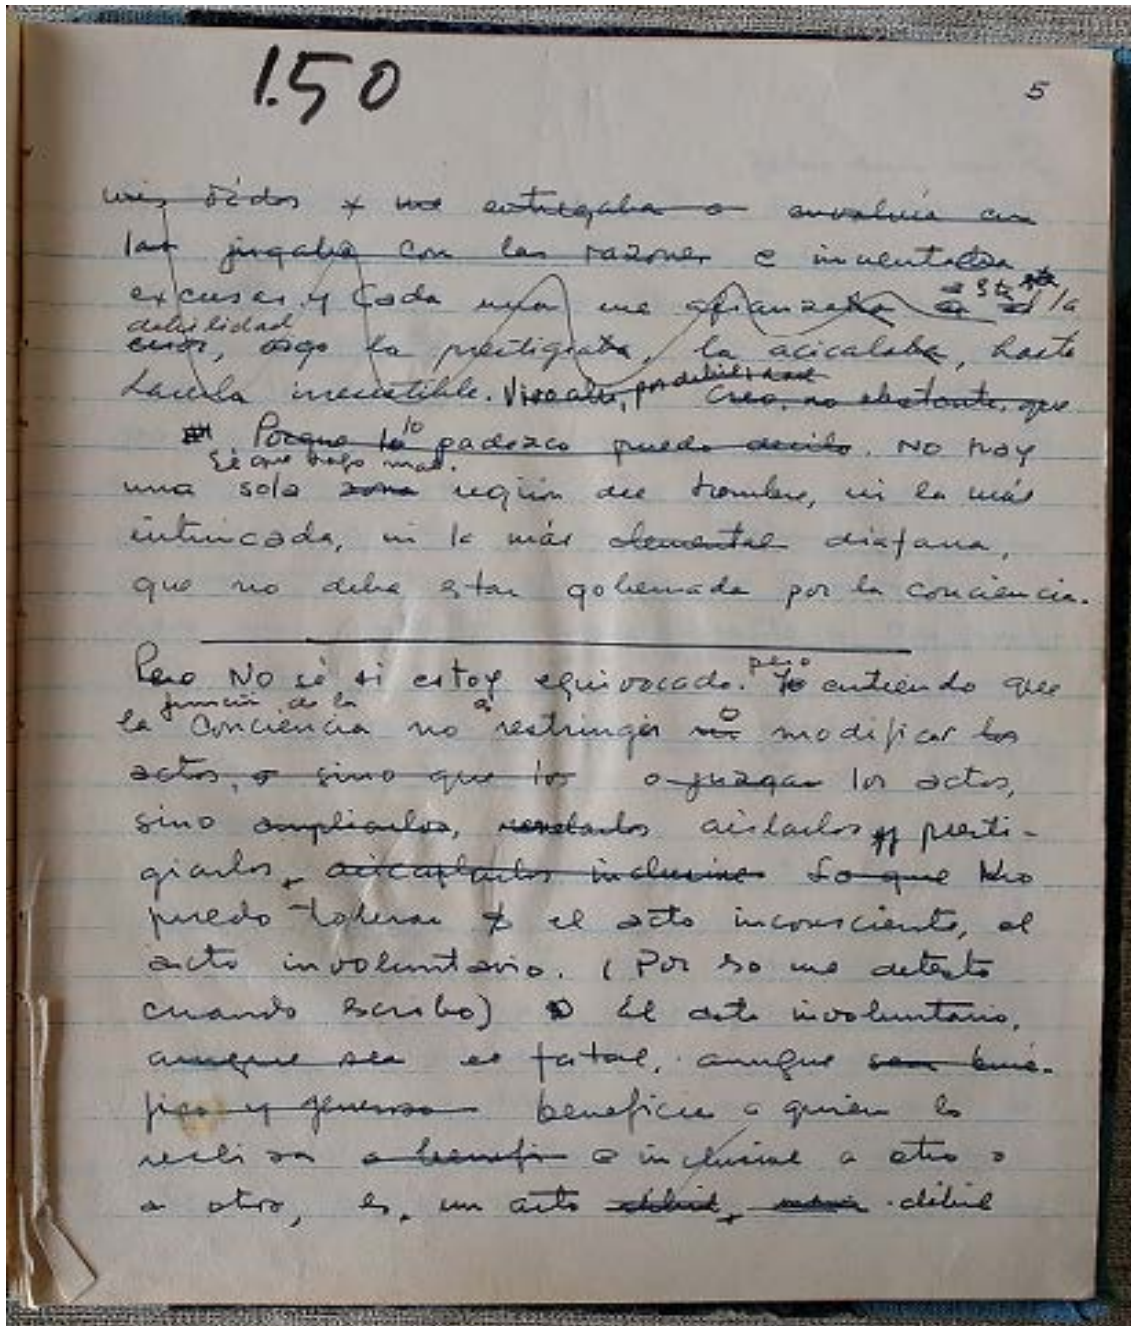 1.50
5
mis oídos y me entregaba o envolvía en
las jugaba con las razones e inventaba
excusas y cada una me afianzaba esta la
debilidad
la prestigiaba, la acicalaba, hasta
hacerla irresistible. por debilidad Creo, no obstante, que
Porque lo lo padezco puedo decirlo. No hay
Sé que hago mal.
una sola zona región del hombre, ni la más
intrincada, ni la más elemental diáfana,
que no deba estar gobernada por la conciencia.
Pero No sé si estoy equivocado. pero Yo entiendo que
función de la
la conciencia no es restringir ni o modificar los
actos, o sino que los o juzgar los actos,
sino ampliarlos, revelarlos aislarlos y presti-
giarlos, inclusive Lo que No
puedo tolerar es el acto inconsciente, el
acto involuntario. (Por eso me detesto
cuando escribo) El acto involuntario,
aunque sea es fatal, aunque sea bené-
fico y generoso beneficie a quien lo
realiza o benefi e inclusive a otro o
a otros, es, un acto débil, débil